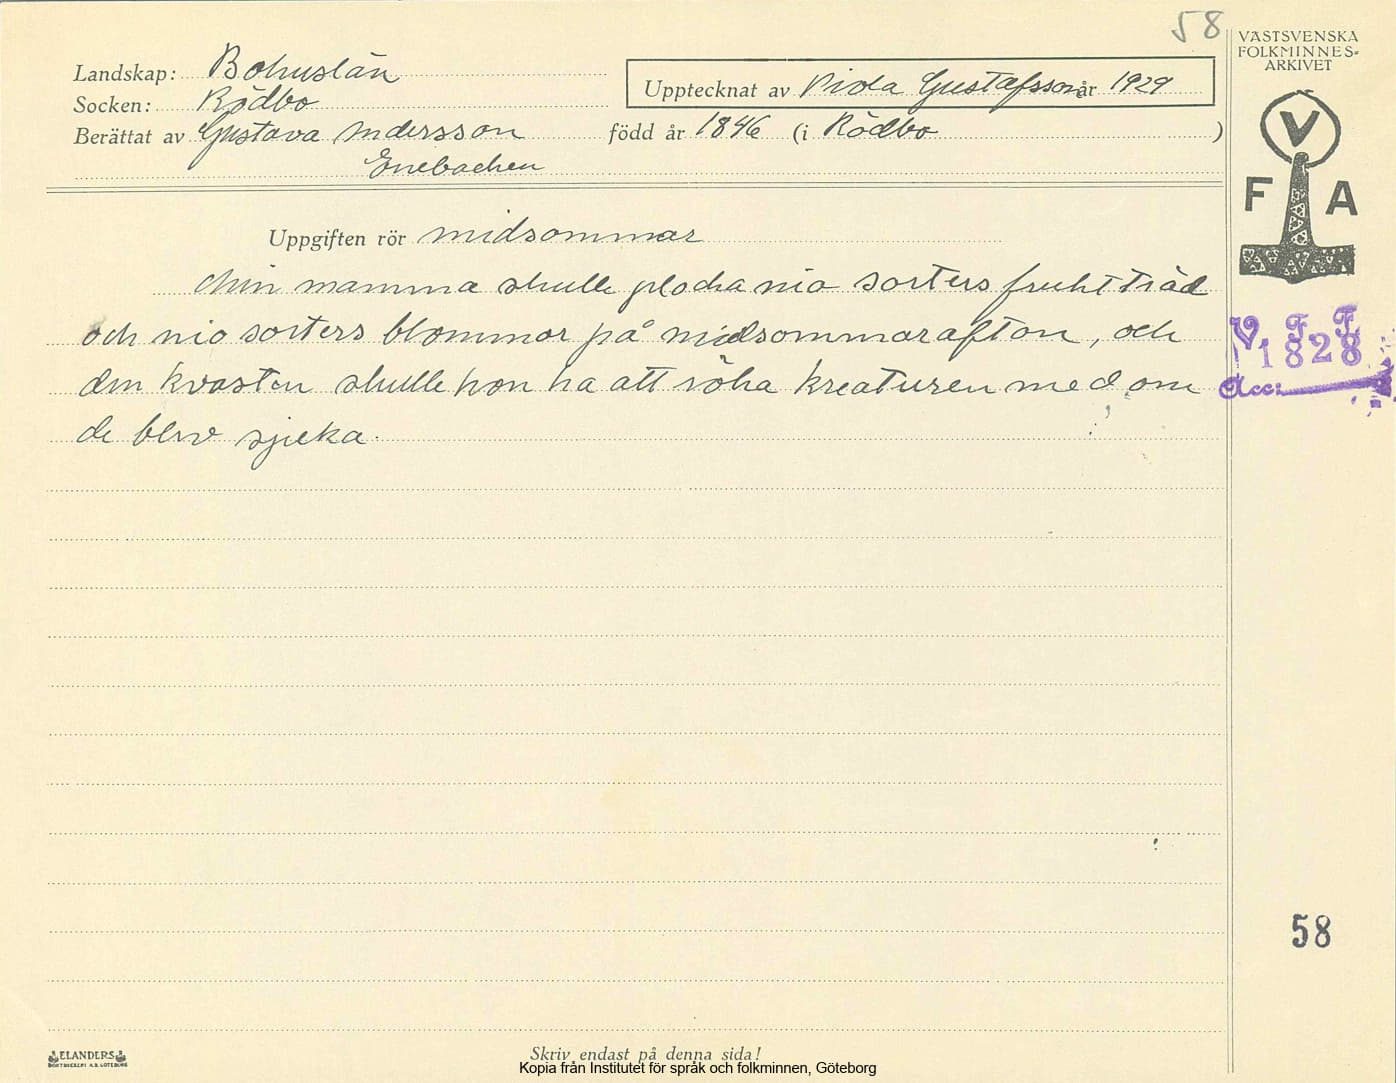 58
VÄSTSVENSKA
FOLKMINNES-
ARKIVET
Landskap: Bohuslän
Socken: Rödbo
Upptecknat av Viola Gustafsson år 1929
Berättat av Gustava Andersson född år 1846 (i Rödbo )
Enebacken
V
F A
Uppgiften rör midsommar
Min mamma skulle plocka nio sorters fruktträd
och nio sorters blommor på midsommarafton, och
den kvasten skulle hon ha att röka kreaturen med om
de blev sjuka.
V. F. F.
1828
Acc:
58
ELANDERS
BOKTRYCKERI A.B. GÖTEBORG
Skriv endast på denna sida!
Kopia från Institutet för språk och folkminnen, Göteborg